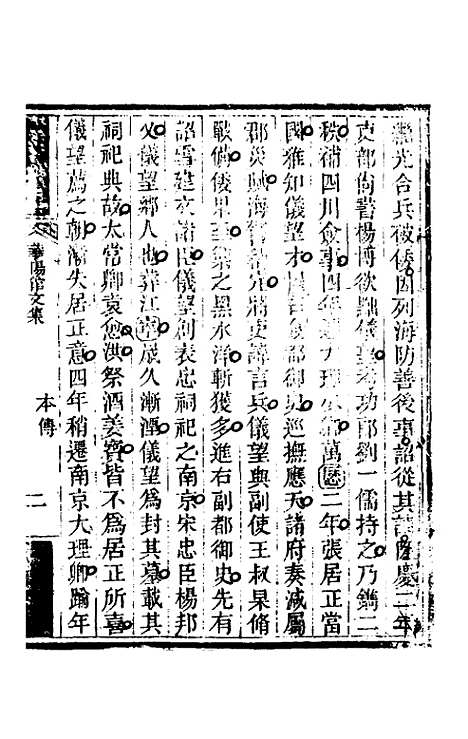 繼光合兵破倭因列海防善後事詔從其請隆慶二年
吏部尚書楊博欲黜儀望考功郎劉一儒持之乃鐫二
秩補四川僉事四年遷大理丞萬曆二年張居正當
國雅知儀望才擢右僉都御史巡撫應天諸府奏減屬
郡災賦海警將吏諱言兵儀望與副使王叔杲脩
戰備倭果至禦之黑水洋斬獲多進右副都御史先有
詔雪建文諸臣儀望創表忠祠祀之南京宋忠臣楊邦
乂儀望鄉人也葬江寧歲久漸湮儀望為封其墓載其
祠祀典故太常卿袁愈洪祭酒姜寶皆不為居正所喜
儀望薦之朝漸失居正意四年稍遷南京大理卿踰年
華陽館文集
本傳
二